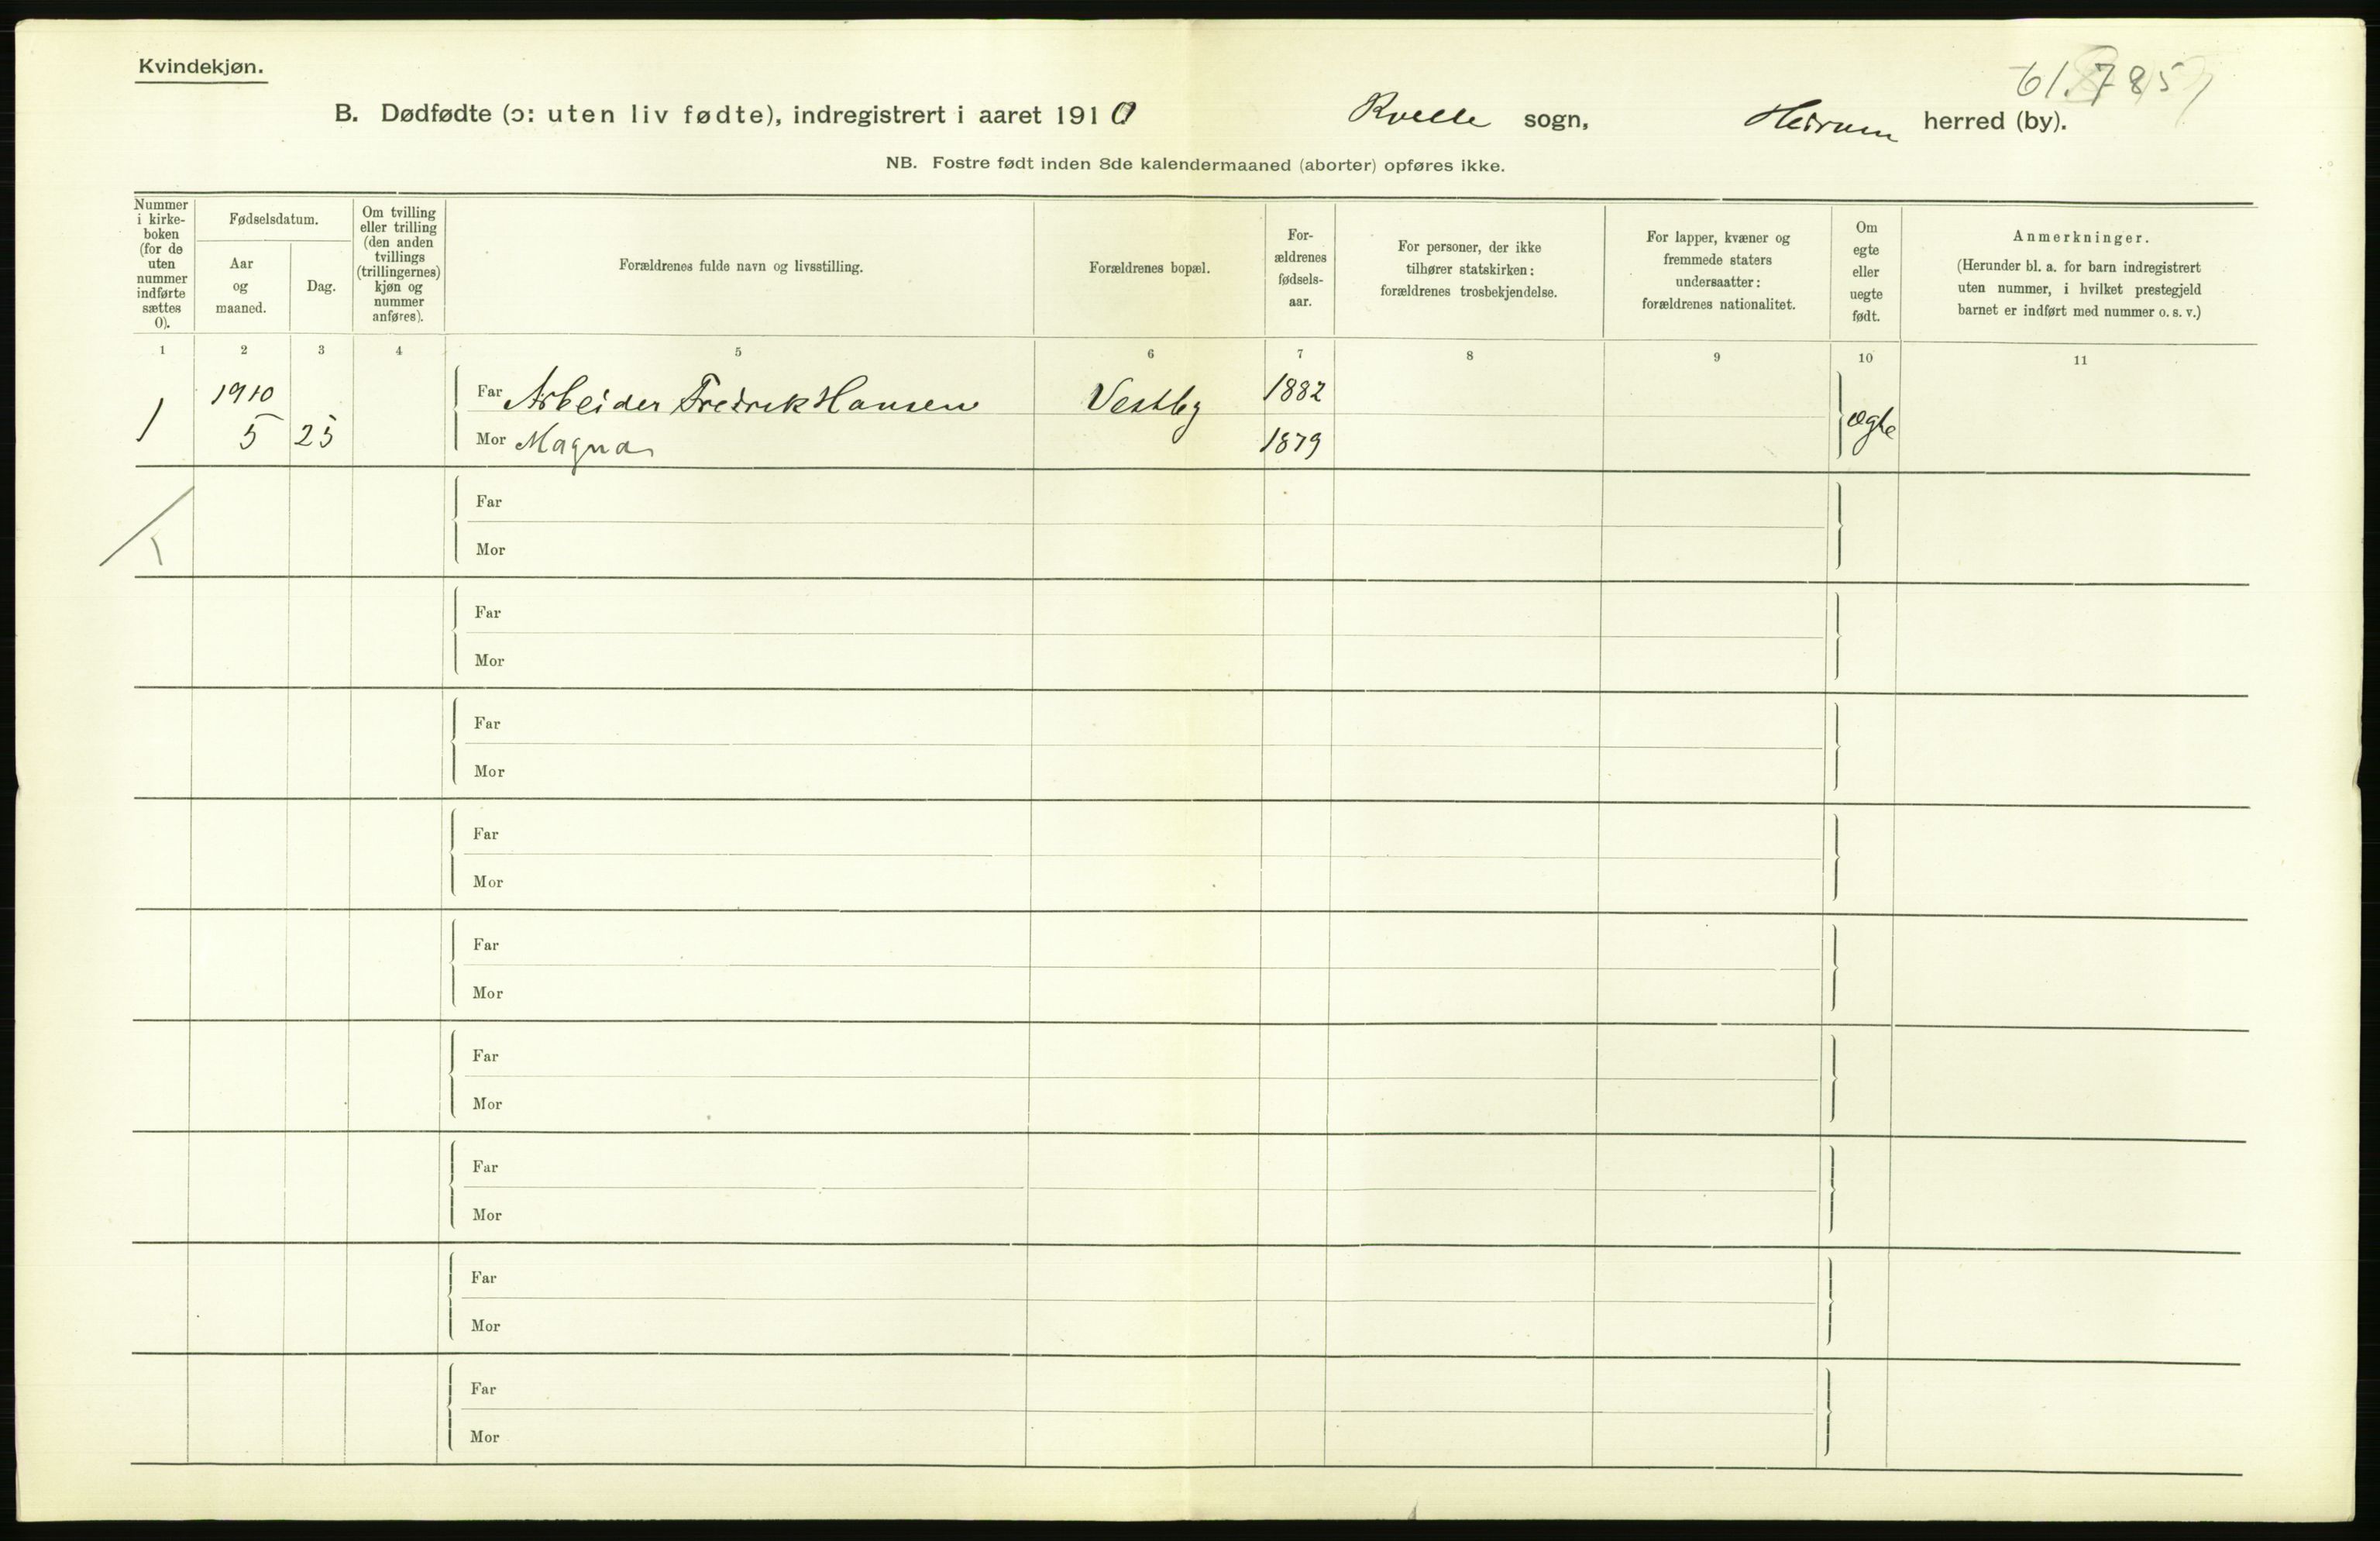 Kvindekjøn.
61.785
B. Dødfødte (ɔ: uten liv fødte), indregistrert i aaret 1910 Kvelle sogn, Hedrum herred (by).
NB. Fostre født inden 8de kalendermaaned (aborter) opføres ikke.
Nummer
i kirke-
boken
(for de
uten
nummer
indførte
sættes
0).
Fødselsdatum.
Aar
og
maaned.
Dag.
Om tvilling
eller trilling
(den anden
tvillings
(trillingernes)
kjøn og
nummer
anføres).
Forældrenes fulde navn og livsstilling.
Forældrenes bopæl.
For-
ældrenes
fødsels-
aar.
For personer, der ikke
tilhører statskirken:
forældrenes trosbekjendelse.
For lapper, kvæner og
fremmede staters
undersaatter:
forældrenes nationalitet.
Om
egte
eller
uegte
født.
Anmerkninger.
(Herunder bl. a. for barn indregistrert
uten nummer, i hvilket prestegjeld
barnet er indført med nummer o. s. v.)
1 2 3 4 5 6 7 8 9 10 11
1910 Far Arbeider Fredrik Hansen Vestby 1882
1 5 25 Mor Magna 1879 ægte
Far
Mor
Far
Mor
Far
Mor
Far
Mor
Far
Mor
Far
Mor
Far
Mor
Far
Mor
Far
Mor